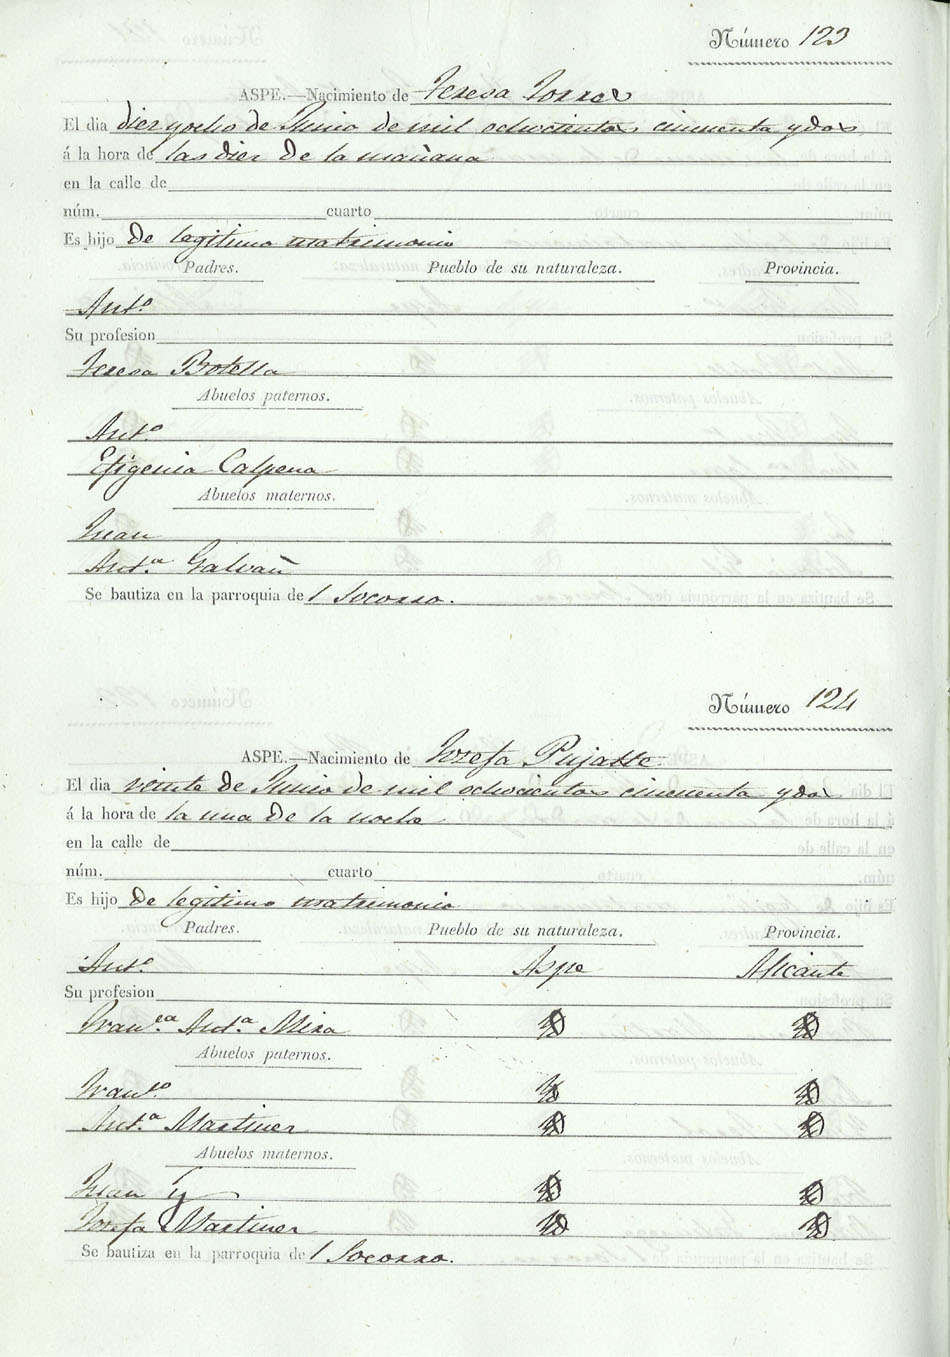 Número 123
ASPE.—Nacimiento de Teresa Torres
El dia diez y ocho de Junio de mil ochocientos cincuenta y dos
á la hora de las diez de la mañana
en la calle de
núm. cuarto
Es hijo de legitimo matrimonio
Padres. Pueblo de su naturaleza. Provincia.
Ant.º
Su profesion
Teresa Botella
Abuelos paternos.
Ant.º
Efigenia Calpena
Abuelos maternos.
Juan
Ant.ª Galvañ
Se bautiza en la parroquia del Socorro.
Número 124
ASPE.—Nacimiento de Josefa Pujalte
El dia veinte de Junio de mil ochocientos cincuenta y dos
á la hora de la una de la noche
en la calle de
núm. cuarto
Es hijo de legitimo matrimonio
Padres. Pueblo de su naturaleza. Provincia.
Ant.º Aspe Alicante
Su profesion
Fran.ca Ant.ª Mira
Abuelos paternos.
Fran.co
Ant.ª Martinez
Abuelos maternos.
Juan
Josefa Martinez
Se bautiza en la parroquia del Socorro.